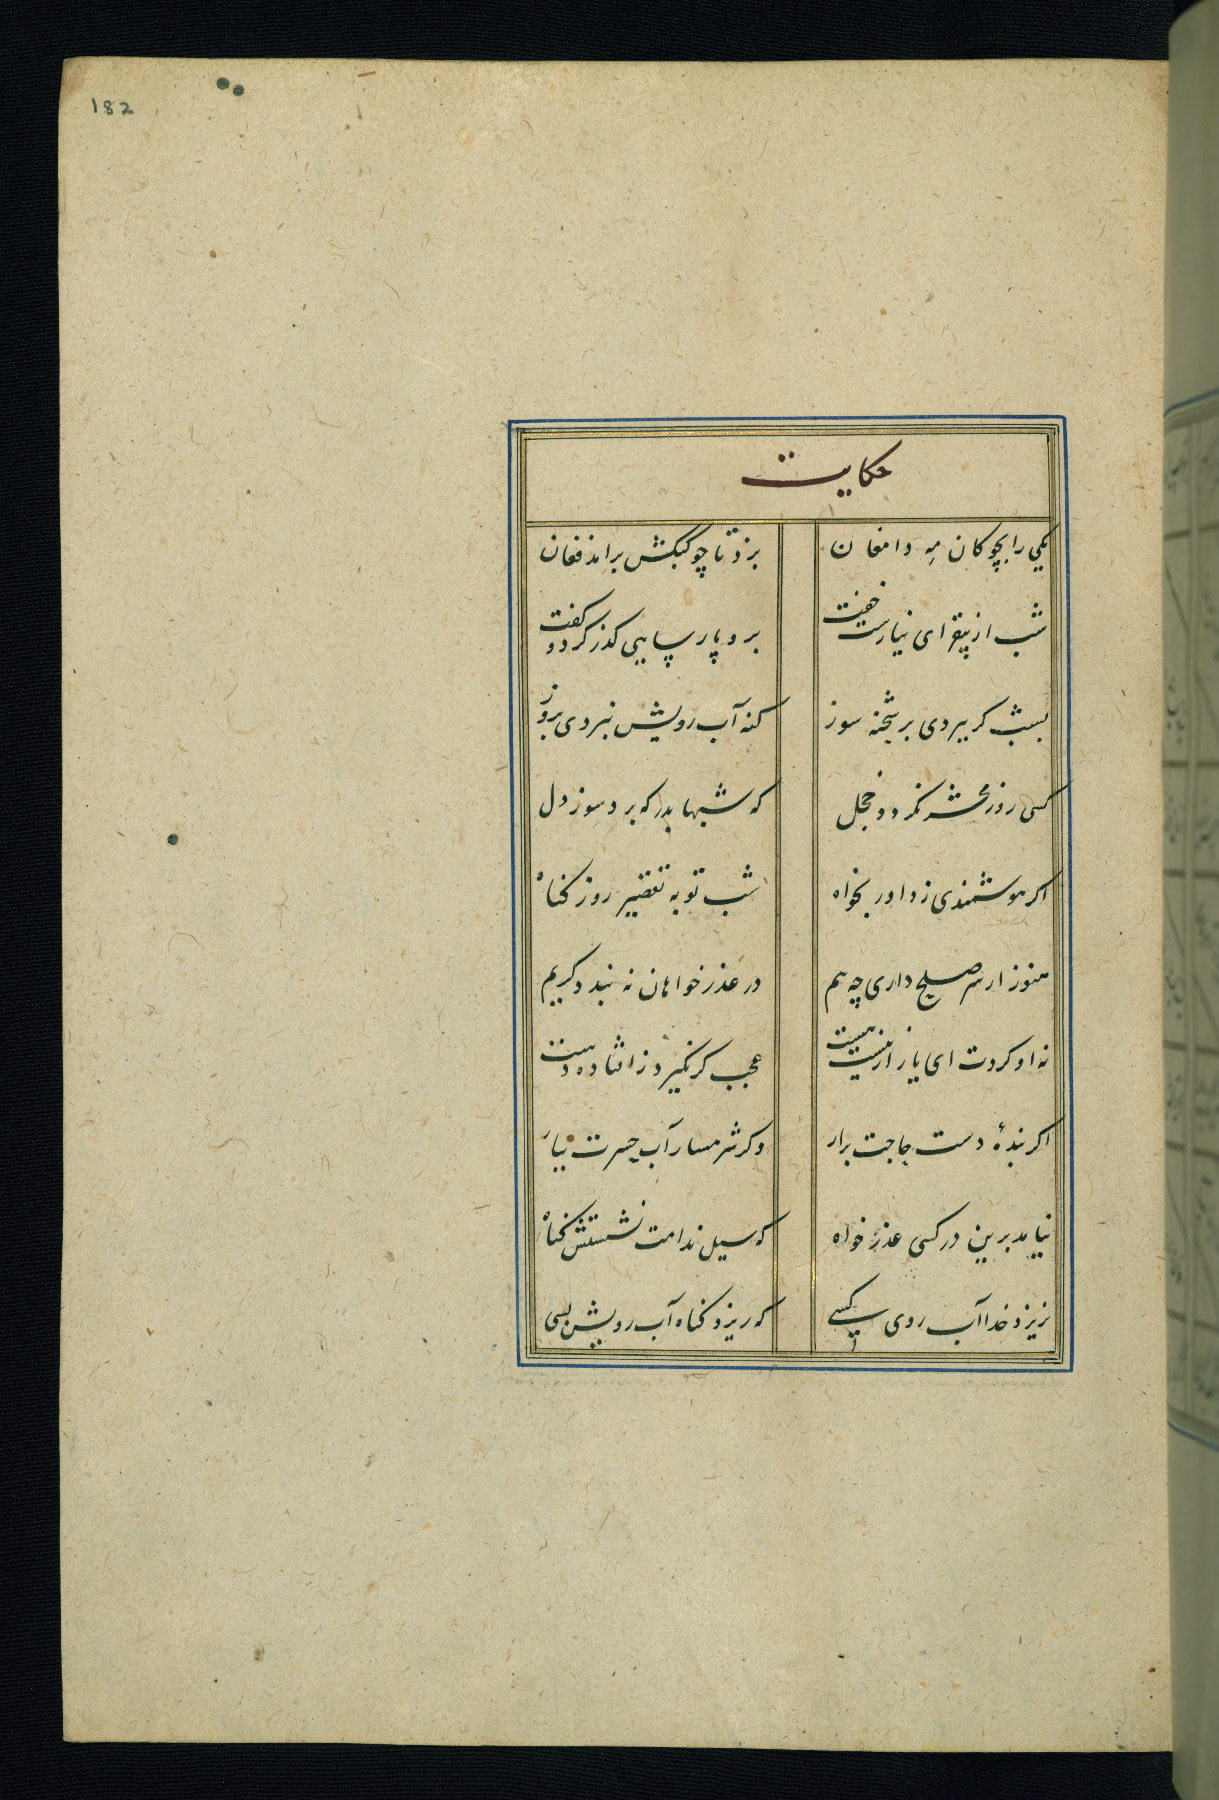 182
حکایت
یکی را بچوکان مه دامغان بزد تا چو کبکش برامد فغان
شب از بیقرای نیارست خفت برو پارسایی کذر کرد و کفت
بشب کر ببردی بر شحنه سوز کنه آب رویش نبردی بروز
کسی روز محشر نکردد خجل که شبها بدر که برد سوز دل
اکر هوشمندی ز داور بخواه شب توبه تقصیر روز کناه
هنوز ار سر صلح داری چه بیم در عذر خواهان نه بندد کریم
نه او کردت ای یار از نیست هست عجب کر نکیرد ز افتاده دست
اکر بندهٔ دست حاجت برار و کر شرمسار آب حسرت ببار
نیامد برین در کسی عذر خواه که سیل ندامت نشستش کناه
نریزد خدا آب روی کسی که ریزد کناه آب رویش بسی